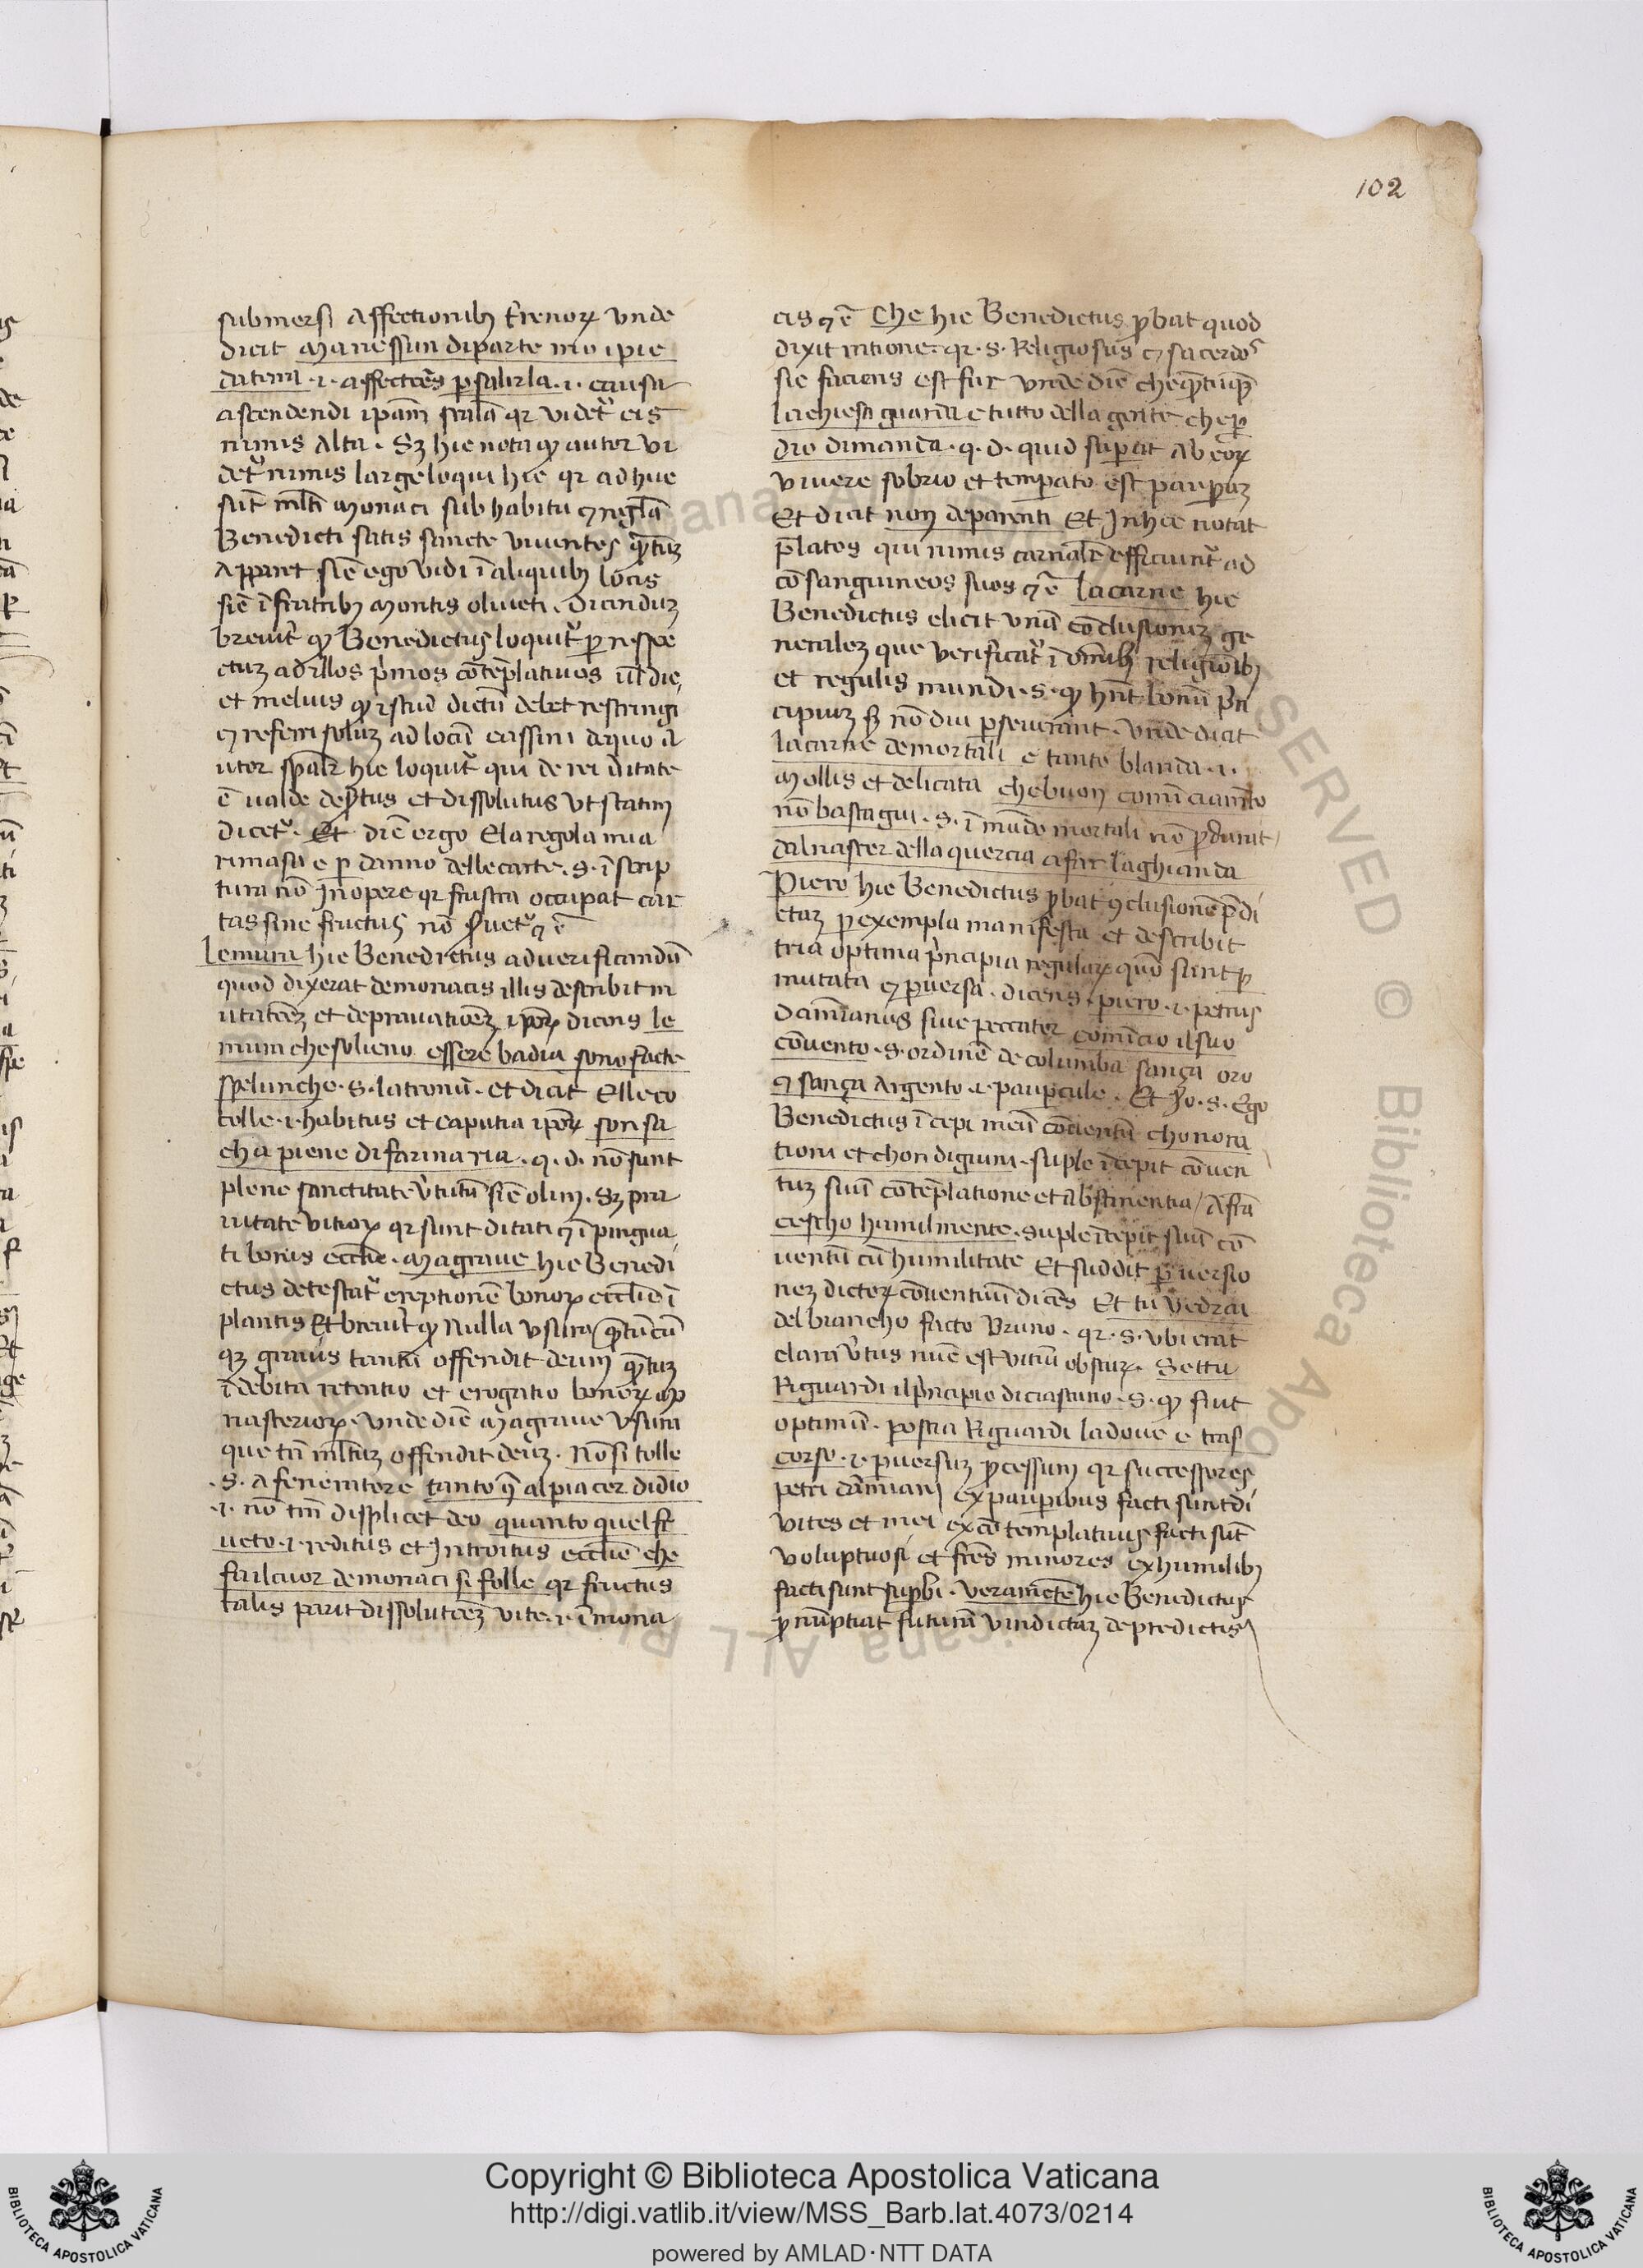 102
submersi affectionibus t̄renoꝝ unde
dicit ma nessun diparte mo i pie
da terra .i. affect̄cēs p̱ salirla .i. causa
ascendendi ipam̄ scalā qr videt᷑ eis
nimis alta . Sꝫ hic nota ꝙ autor vi
det᷑ nimis large loqui hic qr adhuc
sūt ml̄ti monaci sub habitu ⁊ regl̄a
Benedicti satis sancte viventes qᷓtuꝫ
apparet sic̄ ego vidi ī aliquibꝫ locis
sic̄ ī fratribꝫ montis oliveti . Dicenduꝫ
brevit̄ ꝙ Benedictus loquit᷑ p̱ respe
ctuꝫ ad illos p̄mos cōtēplativos ul̄ dic
et melius ꝙ istud dictū debet restringi
⁊ referri soluꝫ ad locū cassini de quo a
utor sp̄alr̄ hic loquit᷑ qui de rei v̄itate
ē valde dep̄tus et dissolutus ut statim
dicet᷑ . Et dic̄ ergo E la regola mia
rimasa e p̱ danno delle carte . s . ī scrip
tura nō in opere qr frustra occupat car
tas sine fructu ⁊ nō s̄vet᷑ ⁊ c̄
Le mura hic Benedictus ad verificandū
quod dixerat de monacis illis describit m
utatōēꝫ et depravatiōēꝫ ipoꝝ dicens le
mura che solieno essere badia sono facte
spelunche . s . latronū . et dicit Elle co
colle .i. habitus et caputia ipoꝝ son sa
cha piene di farina ria . q . d . nō sunt
plene sanctitate v̄tutū sic̄ olim . Sꝫ pra
vitate vitioꝝ qr sunt ditati ⁊ ī pingua
ti bonis eccl̄ie . Ma grave hic Benedi
ctus detestat᷑ ereptionē bonoꝝ eccl̄ie ī
plantis Et brevit̄ ꝙ nulla usura qᷓtūcū
qꝫ gravis tantū offendit deum qᷓtuꝫ
ī debita retentio et erogatio bonoꝝ mo
nasterioꝝ . unde dic̄ Ma grave usura
que tn̄ ml̄tuꝫ offendit deuꝫ . Nō si tolle
. s . a feneratore tanto ꝯ̄ al piacer di dio
.i. nō tm̄ displicet deo quanto quel fr
ucto .i. reditus et introitus eccl̄ie che
fa il cuor de monaci sì folle qr fructus
talis parit dissolutōēꝫ vite .i. ī mona
cis ⁊ c̄ Che hic Benedictus p̱bat quod
dixit ratione . qr . s . Religiosus ⁊ sacerdos
sic faciens est fur unde dic̄ che qᷓtūqꝫ
la chiesa guarda e tutto della gente che p̱
dio dimanda . q . d . quid sup̱at ab eoꝝ
vivere sobrio et temperato est paup̱uꝫ
Et dicit non de parenti Et in hoc notat
p̄latos qui nimis carnalr̄ efficiunt᷑ ad
cōsanguineos suos ⁊ c̄ La carne hic
Benedictus elicit unā cōclusioneꝫ ge
neraleꝫ que verificat᷑ ī omībꝫ religiōibꝫ
et regulis mundi . s . ꝙ hn̄t bonū p̄n
cipiuꝫ sꝫ nō diu p̱severant . unde dicit
la carne de mortali e tanto blanda .i.
mollis et delicata che buon comīciamēto
nō basta gui . s . ī mūdo mortali nō p̱durat
dal nascer della quercia a far la ghianda
Piero hic Benedictus p̱bat ꝯclusionē p̄di
ctaꝫ p̱ exempla manifesta et describit
tria optima p̄ncipia regulaꝝ quō sunt p̱
mutata ⁊ p̱versa . dicens . piero .i. petrus
damianus sive peccator comīcio il suo
cōvento . s . ordinē de columba sança oro
⁊ sança argento .i. paup̱cule . Et Jo . s . Ego
Benedictus īcepi meū cōventū ch on ora
tioni et chon digiuni . suple īcepit cōven
tuꝫ suū cōtēplatione et abstinentia / A frā
cescho humilmente . suple īcepit suū cō
ventū cū humilitate Et suddit p̱versio
neꝫ dictoꝝ cōventuū dicēs Et tu vedrai
del biancho facto bruno . qr . s . ubi erat
clara v̄tus nūc est vitiū obscuꝝ . Se ttu
Riguardi il p̄ncipio di ciascuno . s . ꝙ fuit
optimū . poscia Riguardi la dove e tras
corso .i. p̱versuꝫ p̱cessum qr successores
petri damiani ex paup̱ibus facti sunt di
vites et mei ex cōtemplativis facti sūt
voluptuosi et fr̄es minores ex humilibꝫ
facti sunt sup̱bi . veramēte hic Benedictus
p̱nūptiat futurā vindictaꝫ de predictis
Copyright © Biblioteca Apostolica Vaticana
http://digi.vatlib.it/view/MSS_Barb.lat.4073/0214
powered by AMLAD·NTT DATA